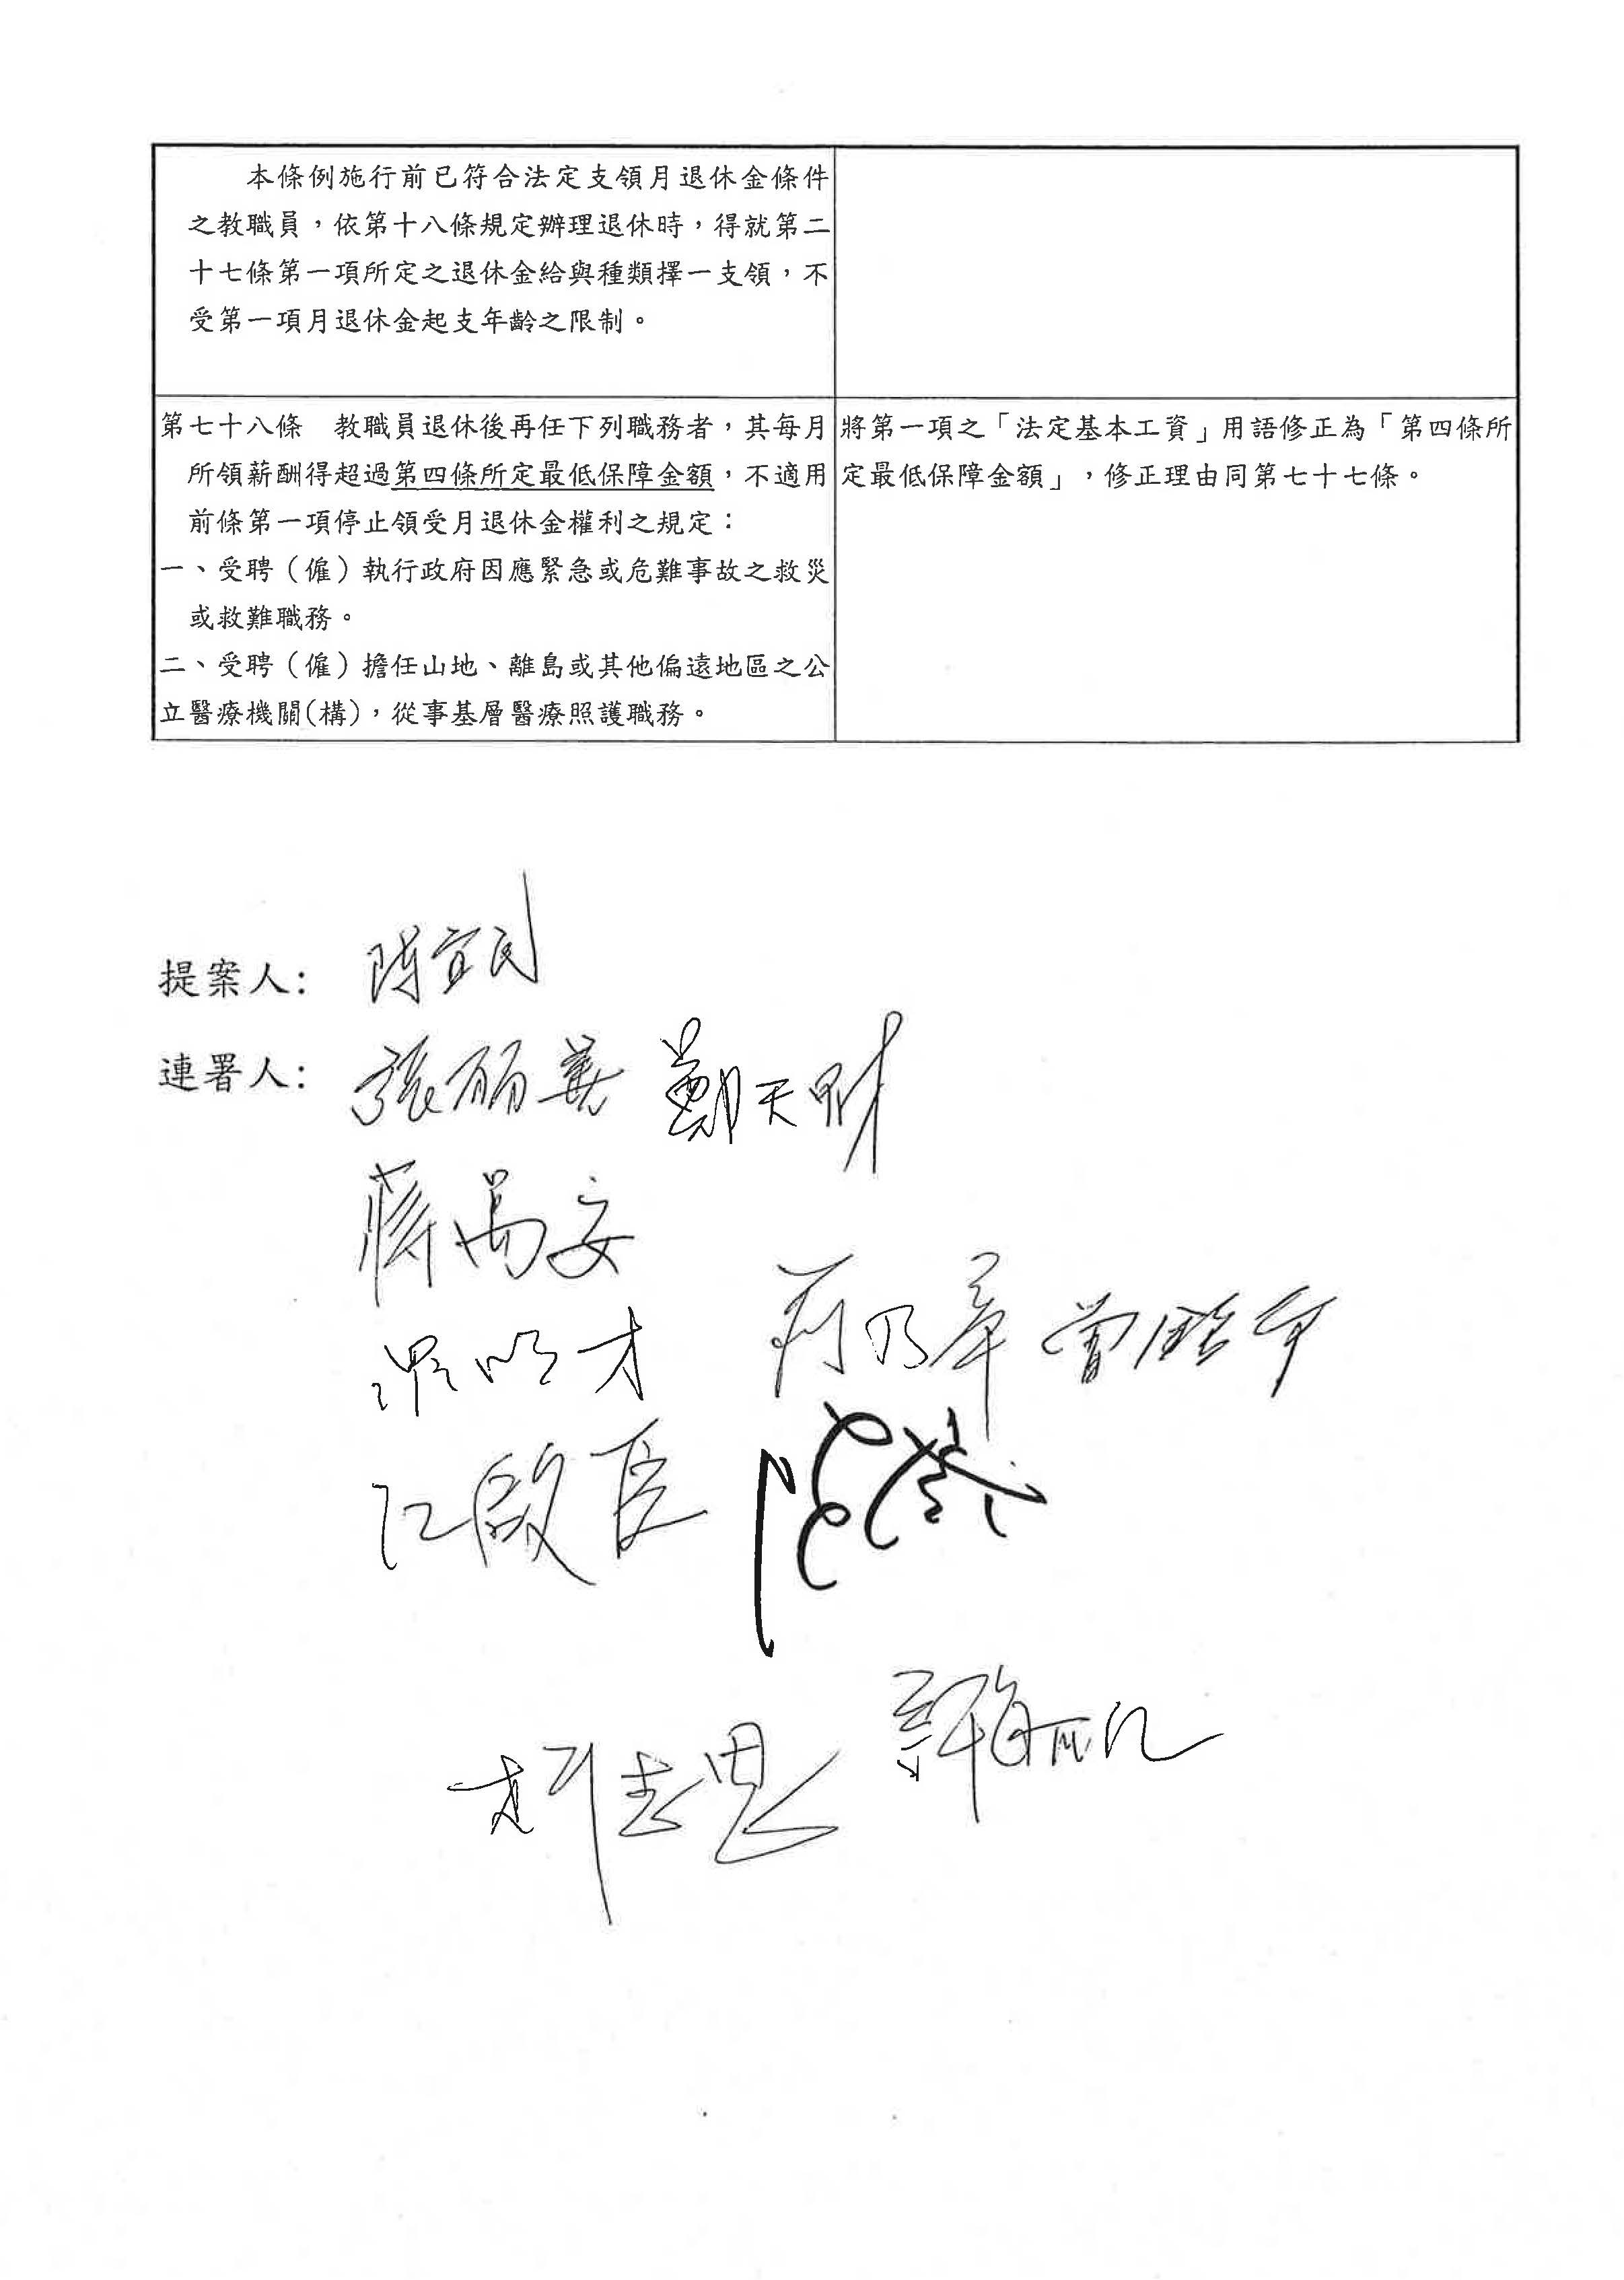 本條例施行前已符合法定支領月退休金條件
之教職員，依第十八條規定辦理退休時，得就第二
十七條第一項所定之退休金給與種類擇一支領，不
受第一項月退休金起支年齡之限制。
第七十八條　教職員退休後再任下列職務者，其每月
所領薪酬得超過第四條所定最低保障金額，不適用
前條第一項停止領受月退休金權利之規定：
一、受聘（僱）執行政府因應緊急或危難事故之救災
或救難職務。
二、受聘（僱）擔任山地、離島或其他偏遠地區之公
立醫療機關(構)，從事基層醫療照護職務。
將第一項之「法定基本工資」用語修正為「第四條所
定最低保障金額」，修正理由同第七十七條。
提案人：陳宜民
連署人：張麗善 鄭天財
蔣萬安
羅明才
江啟臣
柯志恩